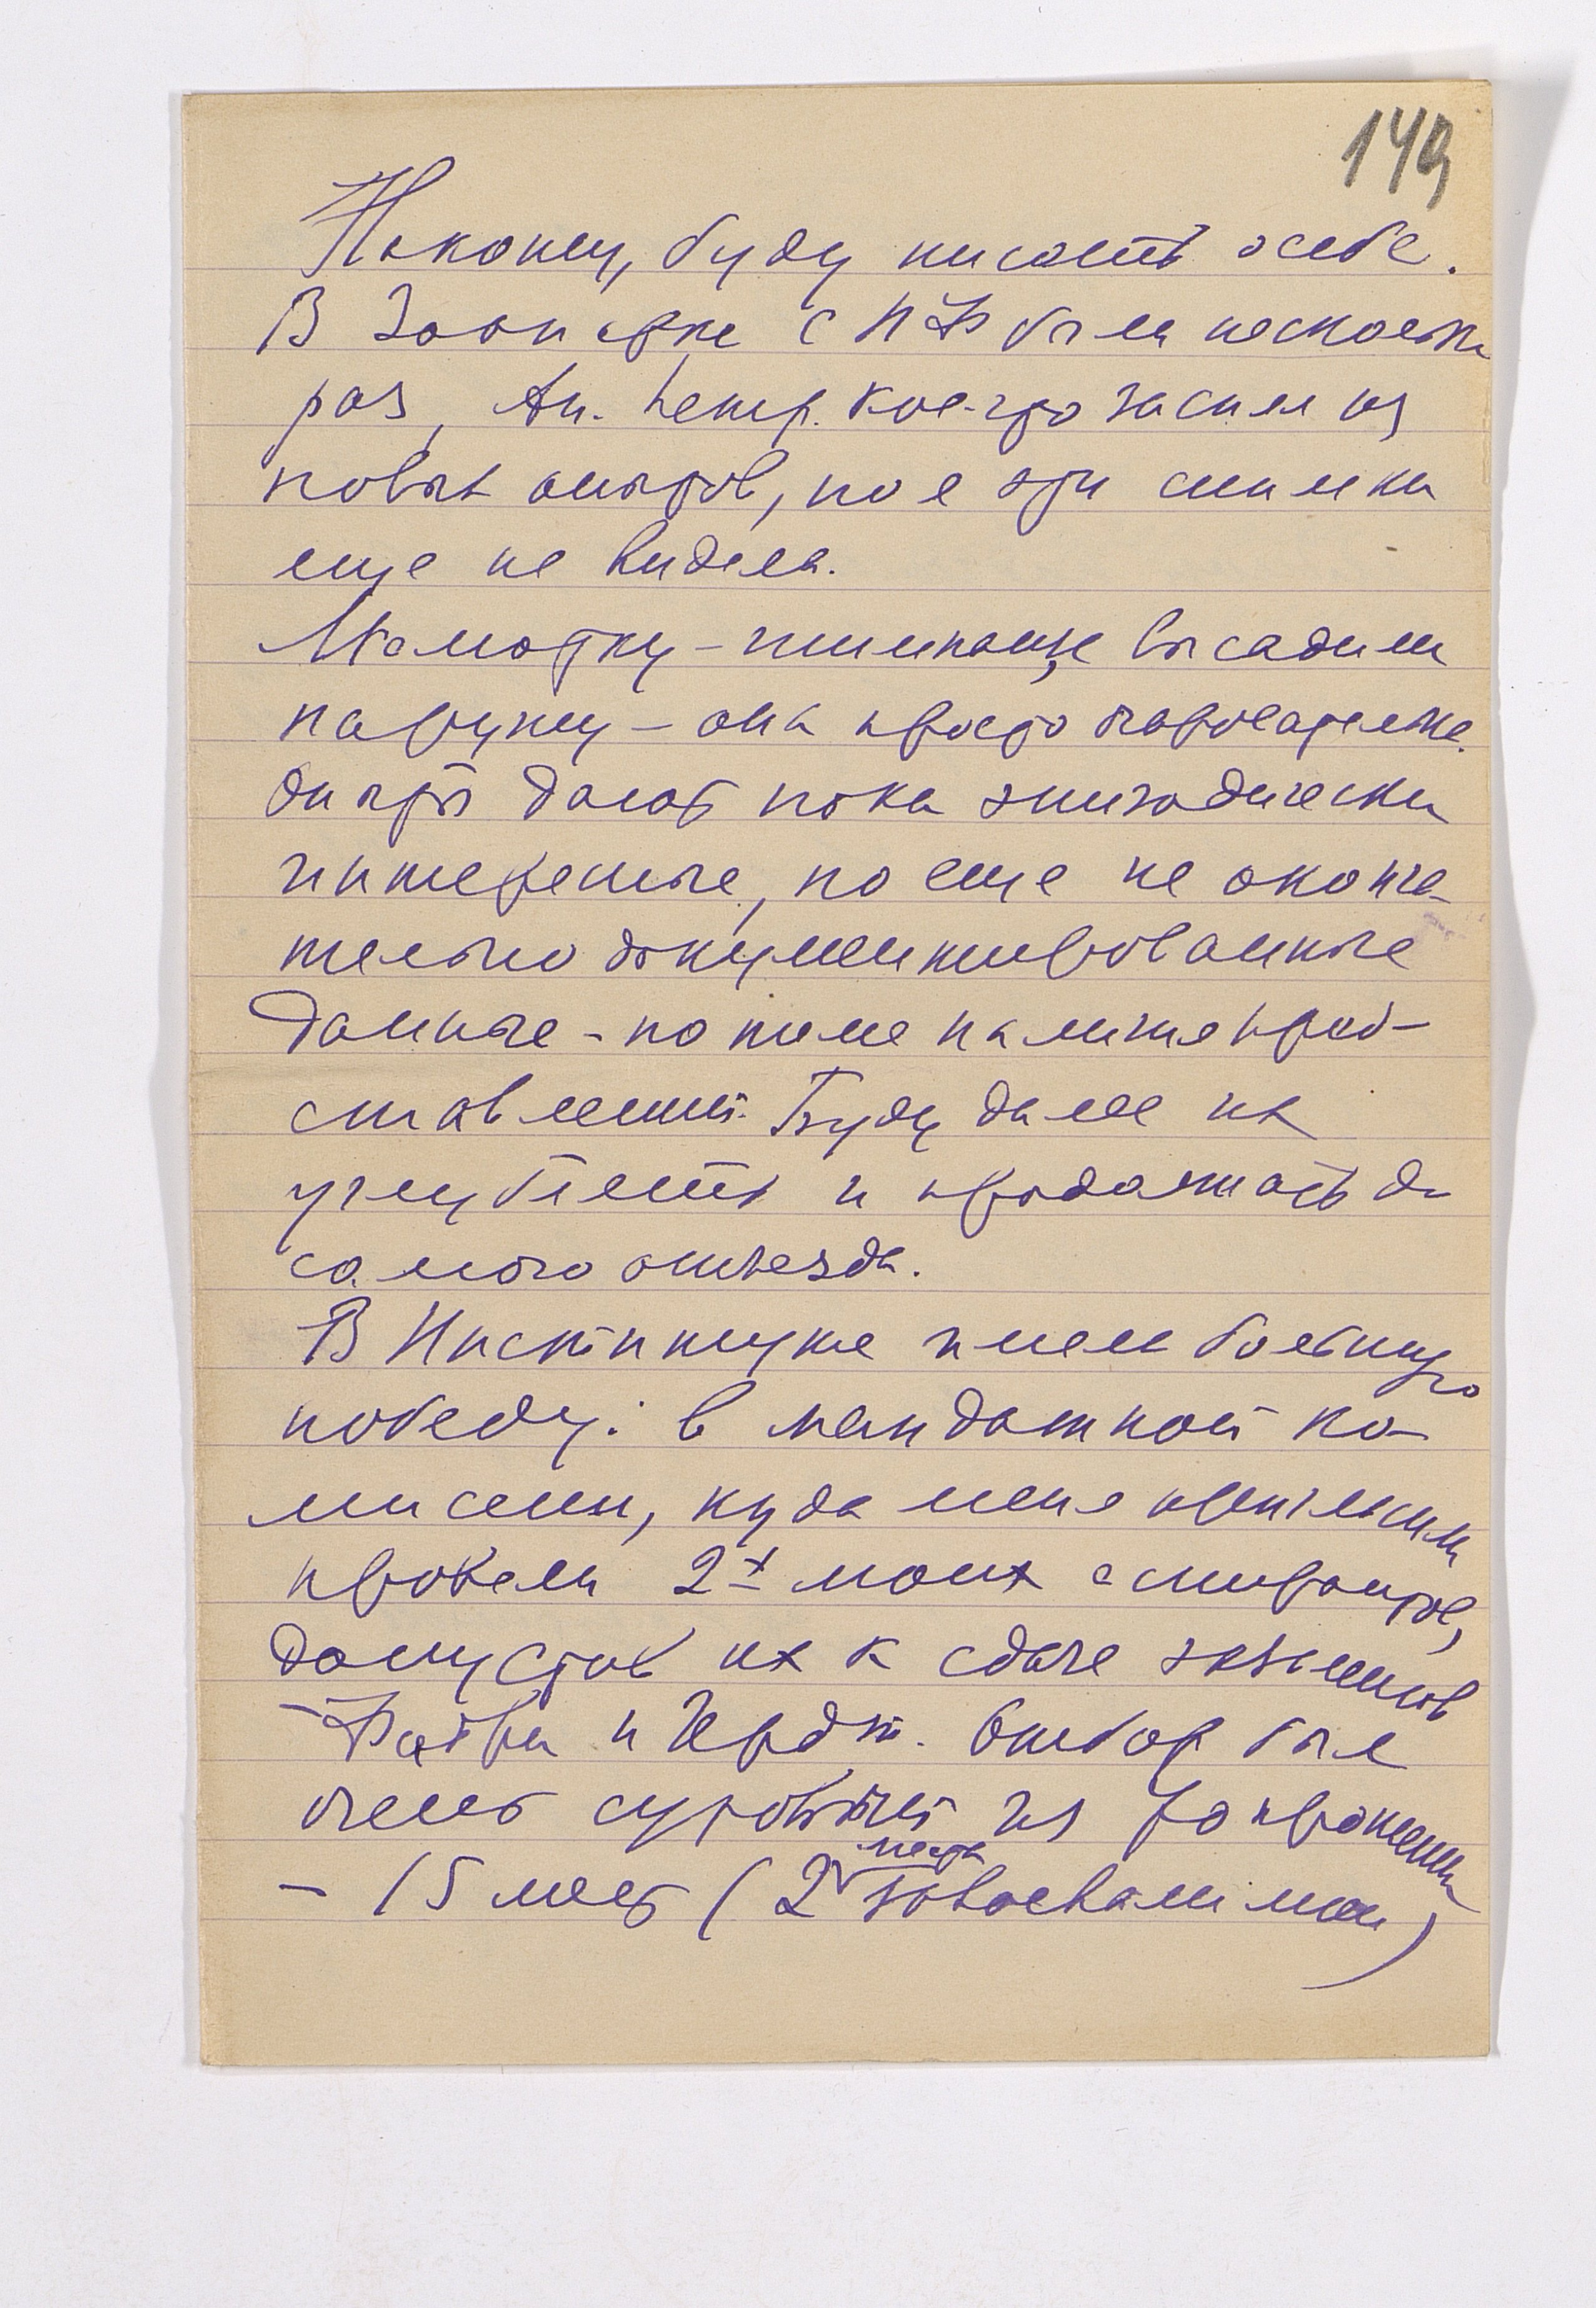 149
Наконец, буду писать о себе.
В Зоопарке с НФ были несколько
раз, Ан. Петр. кое-что заснял из
новых опытов, но я эти снимки
еще не видела.
Малютку-шимпанзе высадили
наружу – она просто очаровательна.
Опыты дают пока эпизодически
интересные, но еще не оконча-
тельно документированные
данные – по теме наличия пред-
ставлений. Буду далее их
углублять и продолжать до
самого отъезда.
В Институте имели большую
победу: в мандатной ко-
миссии, куда меня пригласили
провели 2х моих аспирантов,
допустив их к сдаче экзаменов
– и Отбор был
очень суровый из 70 прошений
– 15 мест (2 места завоевали мои)